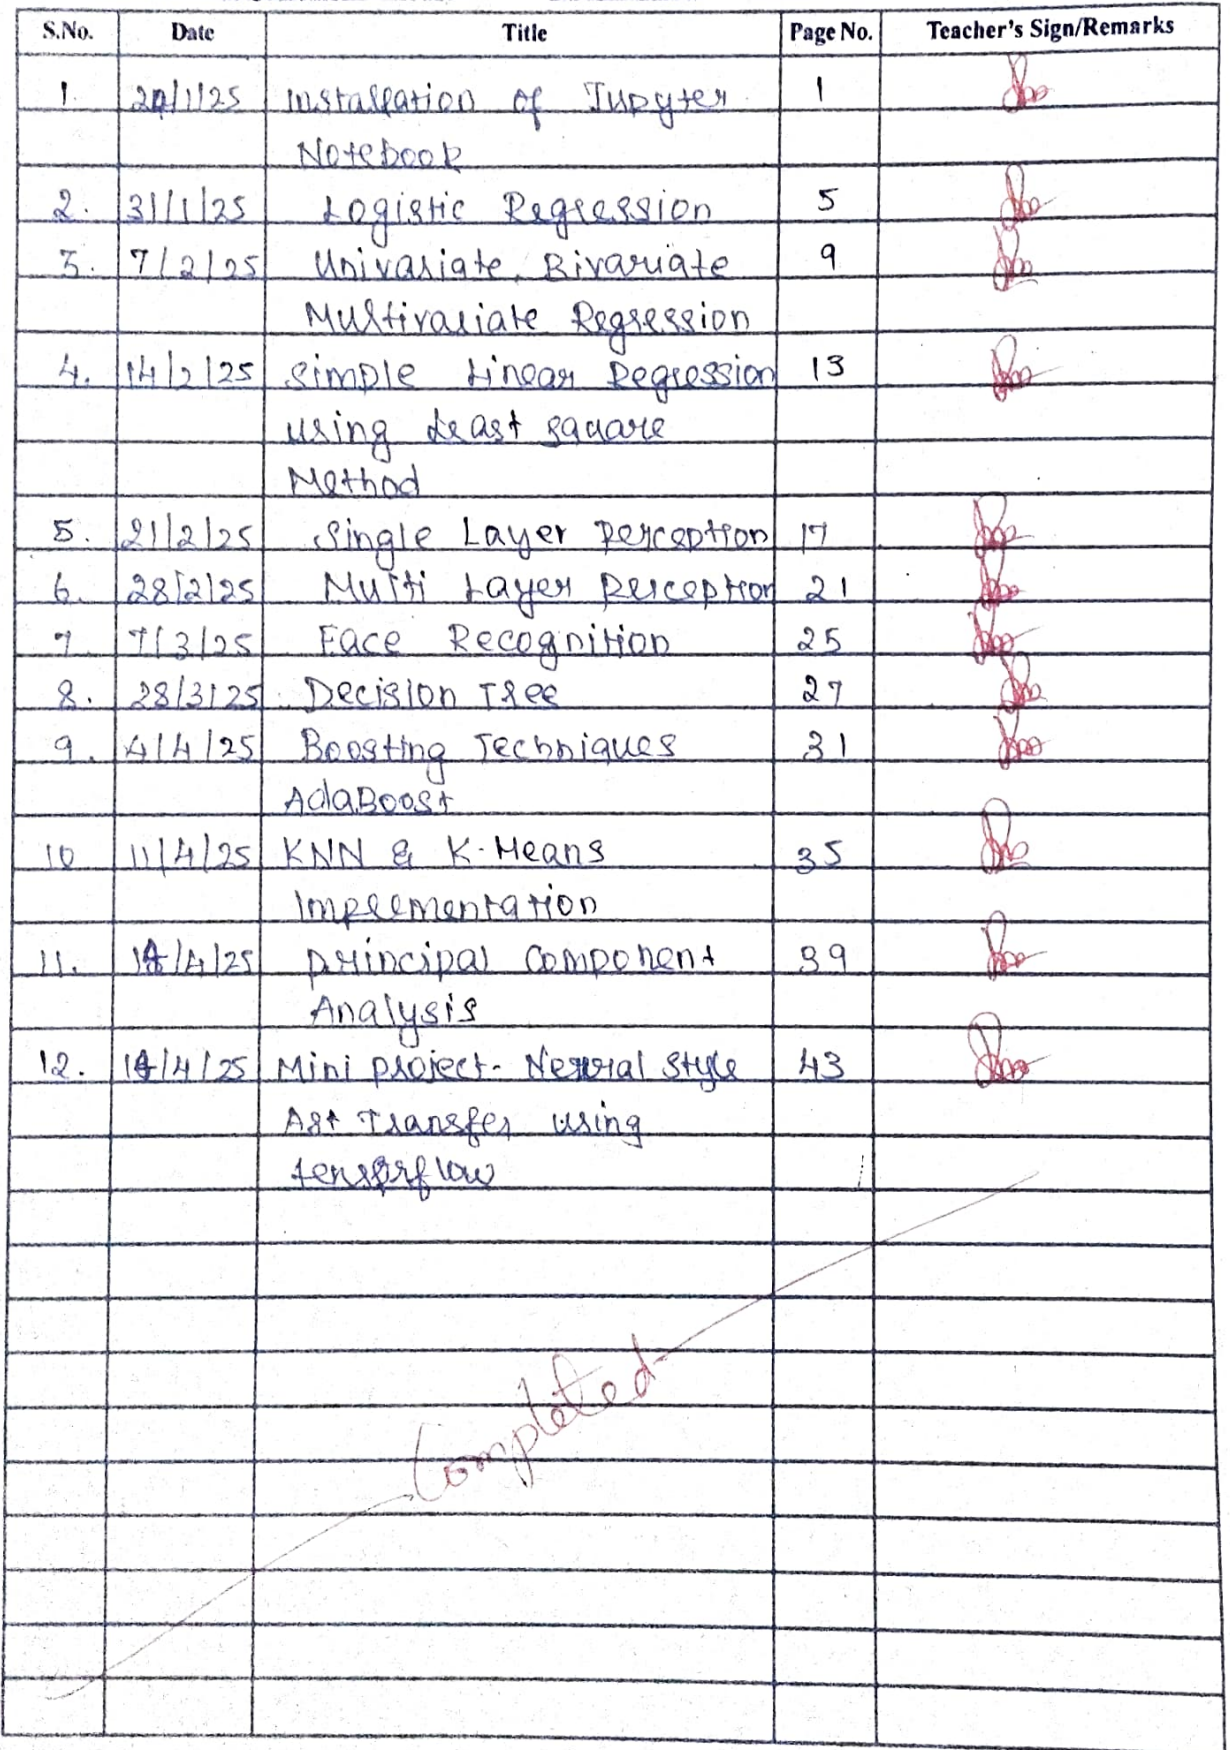 S.No. Date Title Page No. Teacher's Sign/Remarks
1. 24/1/25 Installation of Jupyter 1
Notebook
2. 31/1/25 Logistic Regression 5
3. 7/2/25 Univariate, Bivariate 9
Multivariate Regression
4. 14/2/25 Simple Linear Regression 13
using Least square
Method
5. 21/2/25 Single Layer Perception 17
6. 28/2/25 Multi Layer Perception 21
7 7/3/25 Face Recognition 25
8. 28/3/25 Decision Tree 27
9. 4/4/25 Boosting Techniques 31
AdaBoost
10 11/4/25 KNN & K-Means 35
Implementation
11. /4/25 Principal Component 39
Analysis
12. /4/25 Mini project- Neural Style 43
Art Transfer using
tensorflow
Completed